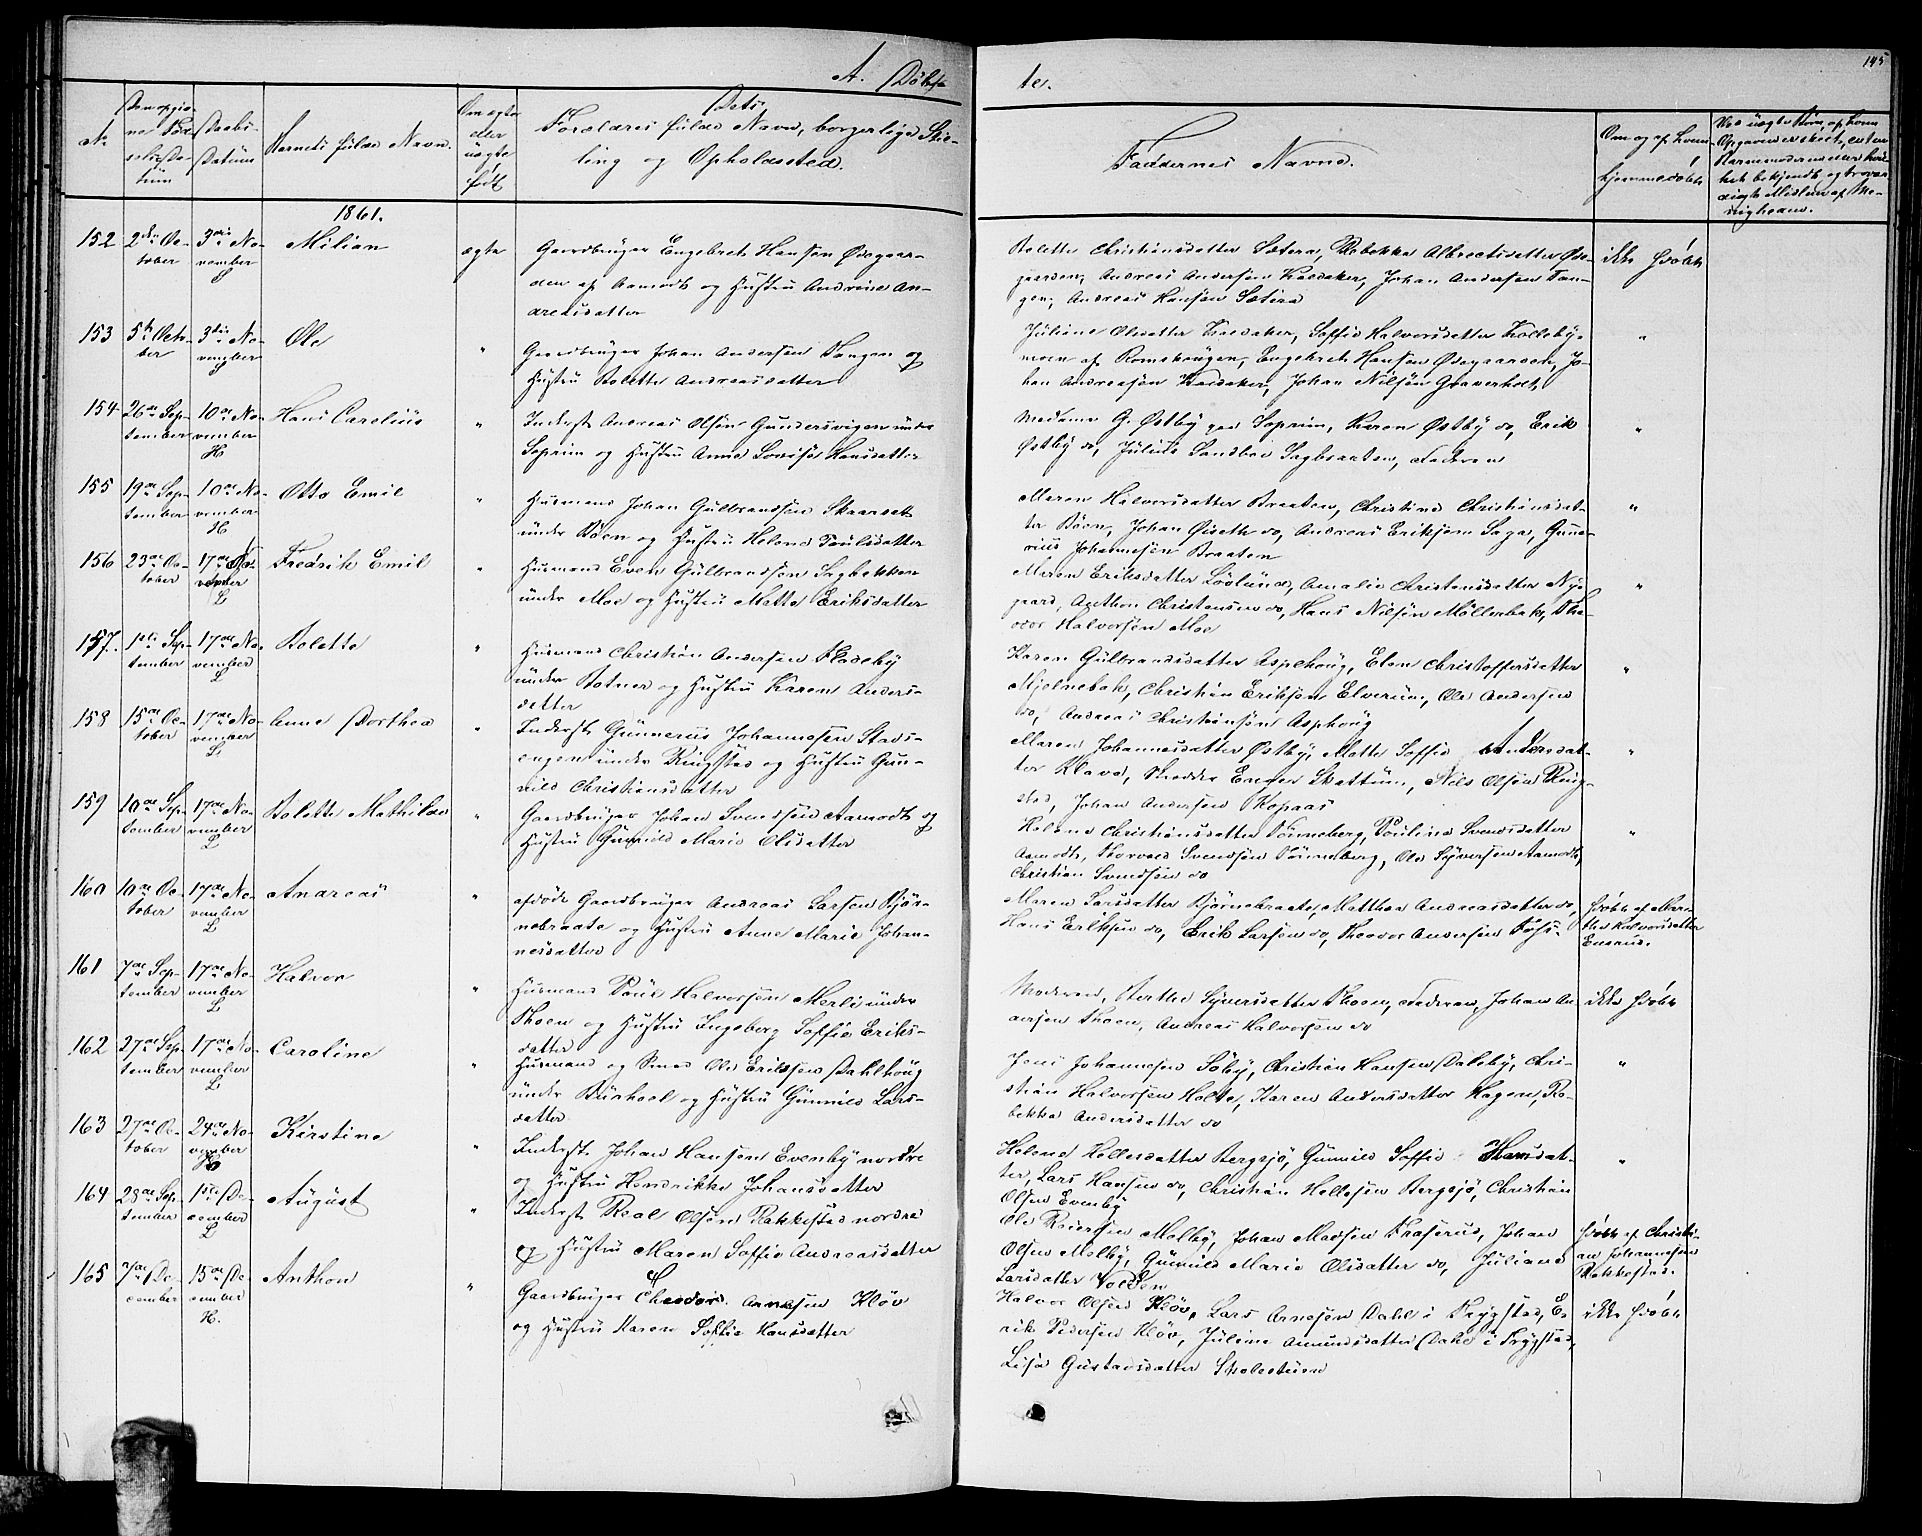 145
A. Døbte.
No
Den opgivne Fødselsdatum
Daabsdatum
Barnets fulde Navn.
Om ægte eller uægte født
Dets Forældres fulde Navn, borgerlige Stilling og Opholdssted.
Faddernes Navne.
Om og af hvem hjemmedøbt
1861.
152 2den October 3die November L Milian ægte Gaardbruger Engebret Hansen Ødegaarden af Aamodt og Hustru Andrine Andreasdatter
Bolette Christiansdatter Sætera, Rebekka Albrectsdatter Ødegaarden, Andreas Andersen Krosaker, Johan Andersen Tangen, Andreas Hansen Sætera ikke hjdøbt
153 5te October 3die November Ole " Gaardbruger Johan Andersen Tangen og Hustru Bolette Andreasdatter
Juliane Olsdatter Krosaker, Soffie Halvorsdatter Kollebymoen af Romskougen, Engebret Hansen Ødegaarden, Johan Andreasen Krosaker, Johan Nilsen Graverholt "
154 26de September 10de November H Hans Carelius " Inderst Andreas Olsen Gundersvigen under Soprim og Hustru Anne Lovise Hansdatter
Madame G. Østby paa Soprim, Karen Østby do, Erik Østby do, Julius Sandbæ Sagbraaten, Faderen "
155 19de September 10de November H Otto Emil " Husmand Johan Gulbrandsen Skaarset under Bøen og Hustru Helene Poulsdatter
Maren Halvorsdatter Braaten, Christine Christiansdatter Bøen, Johan Øiseth do, Andreas Eriksen Saga, Gunerius Johannesen Braaten "
156 23de October 17de November L Fredrik Emil " Husmand Even Gulbrandsen Sagbakken under Moe og Hustru Mette Eriksdatter
Maren Eriksdatter Løslund, Amalie Christensdatter Nygaard, Anthon Christensen do, Hans Nilsen Møllerbak, Theodor Halvorsen Moe "
157. 1ste September 17de November L Bolette " Husmand Christian Andersen Fladeby under Botner og Hustru Karen Andersdatter
Karen Gulbrandsdatter Aspehoug, Elen Christoffersdatter Mjelnebak, Christian Eriksen Elverum, Ole Andersen do, Andreas Christiansen Asphoug "
158 15de October 17de November L Anne Dorthea " Inderst Gunnerus Johannesen Stadsengen under Ringstad og Hustru Gunnild Christiansdatter
Maren Johannesdatter Østby, Mette Soffie Andersdatter Klavd, Enger Skattum, Nils Olsen Ringstad, Johan Andersen Kopaas "
159 10de September 17de November L Bolette Mathilde " Gaardbruger Johan Svendsen Aamodt og Hustru Gunnild Marie Olsdatter
Helene Christiansdatter Tønneberg, Pouline Svendsdatter Aamodt, Thorvald Svendsen Tønneberg, Ole Syversen Aamodt, Christian Svendsen do "
160 10de October 17de November L Andreas " afdøde Gaardbruger Andreas Larsen Bjørnebraate og Hustru Anne Marie Johannesdatter
Maren Larsdatter Bjørnebraate, Matthea Andreasdatter do, Hans Eriksen do, Erik Larsen do, Theodor Andersen Fos. hjdøbt af Marthe Halvorsdatter Ensrud.
161 7de September 17de November L Halvor " Husmand Poul Halvorsen Merli under Thoen og Hustru Ingeborg Soffie Eriksdatter
Moderen, Berthe Syversdatter Thoen, Faderen, Johan Andersen Thoen, Andreas Halvorsen do ikke hjdøbt
162 27de September 17de November L Caroline " Husmand og Smed Ole Eriksen Dahlhoug under Buerhoel og Hustru Gunnild Larsdatter
Jens Johannesen Søby, Christian Hansen Dalsby, Christian Halvorsen Holte, Karen Andersdatter Hagen, Rebekka Andersdatter do "
163 27de October 24de November H Kirstine " Inderst Johan Hansen Evenby nordre og Hustru Hendrikke Johansdatter
Helene Hellesdatter Bergsjø, Gunnild Soffie Hansdatter, Lars Hansen do, Christian Hellesen Bergsjø, Christian Olsen Evenby "
164 28de September 1ste December L August " Inderst Real Olsen Rakkestad nordre og Hustru Maren Soffie Andreasdatter
Ole Reiersen Melby, Johan Madsen Kraserud, Johan Olsen Melby, Gunnild Marie Olsdatter do, Juliane Larsdatter Volden hjdøbt af Christian Johannesen Rakkestad.
165 7de December 15de December H. Anthon " Gaardbruger Theodor Arnesen Kløv og Hustru Karen Soffie Hansdatter
Halvor Olsen Kløv, Lars Arnesen Dahl i Trygstad, Erik Pedersen Kløv, Juline Amundsdatter Dahl i Trygstad, Lisa Gustavsdatter Skolestuen ikke hjdøbt